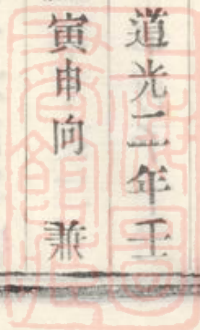 道光二年壬
寅申向 兼